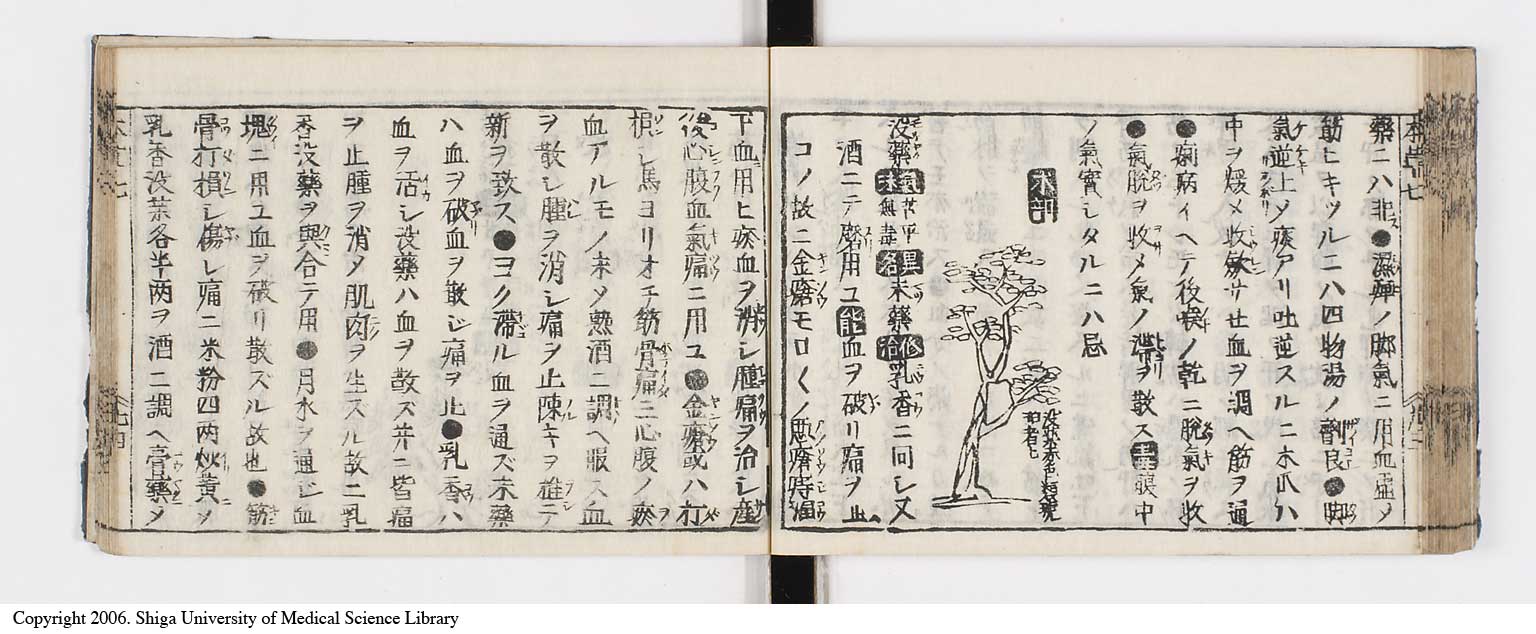 藥ニハ非●濕痺ノ脚氣ニ用血虚ノ
筋ヒキツルニハ四物湯ノ劑良●脚
氣逆上メ痰アリ吐逆スルニ木爪ハ
中ヲ煖メ收斂サセ血ヲ調ヘ筋ヲ通
●痢病イヘテ後喉ノ乾ニ脱氣ヲ收
●氣脱ヲ收メ氣ノ滯ヲ散ス 腹中
ノ氣實シタルニハ忌
木部
没藥 氣苦平 異末藥 修治乳香ニ同シ又
酒ニテ磨用ユ能血ヲ破リ痛ヲ止
コノ故ニ金瘡モロ〱ノ惡瘡痔漏
下血用ヒ瘀血ヲ消シ腫痛ヲ治シ産
後心腹血氣痛ニ用ユ●金瘡或ハ打
損シ馬ヨリオチ筋骨痛ニ心腹ノ瘀
血アルモノ末メ熱酒ニ調ヘ服ス血
ヲ散シ腫ヲ消シ痛ヲ止陳キヲ推テ
新ヲ致ス●ヨク滯ル血ヲ通ズ末藥
ハ血ヲ破血ヲ散ジ痛ヲ止●乳香ハ
血ヲ活シ没藥ハ血ヲ散ズ并ニ皆痛
ヲ止腫ヲ消メ肌肉ヲ生スル故ニ乳
香没藥ヲ與合テ用●月水ヲ通ジ血
塊ニ用ユ血ヲ破リ散ズル故也●筋
骨打損シ傷レ痛ニ米粉四两炒黄メ
乳香没茶各半两ヲ酒ニ調ヘ膏藥メ